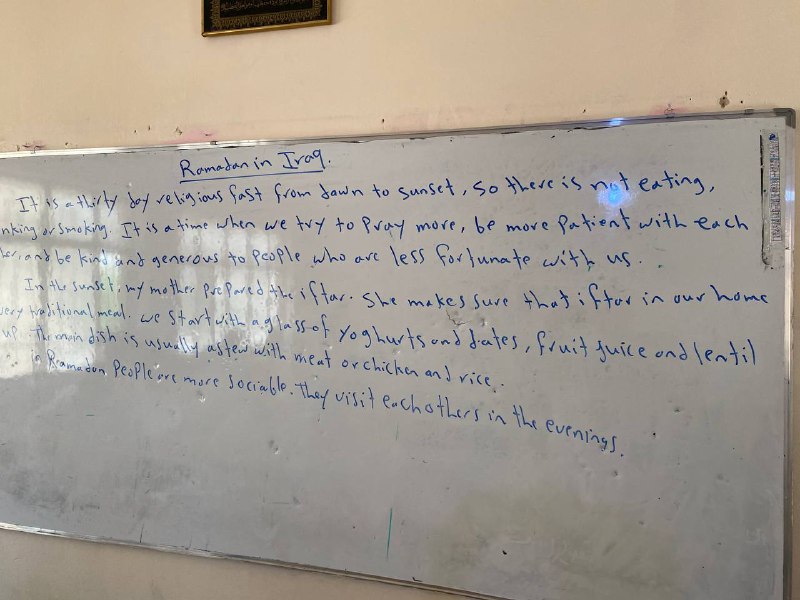 Ramadan in Iraq.
It is a thirty day religious fast from dawn to sunset, so there is not eating,
nking or smoking. It is a time when we try to pray more, be more patient with each
her, and be kind and generous to people who are less fortunate with us.
In the sunset, my mother prepared the iftar. She makes sure that iftar in our home
very traditional meal. we start with a glass of yoghurts and dates, fruit juice and lentil
up. The main dish is usually a stew with meat or chicken and rice.
in Ramadan People are more sociable. They visit each others in the evenings.